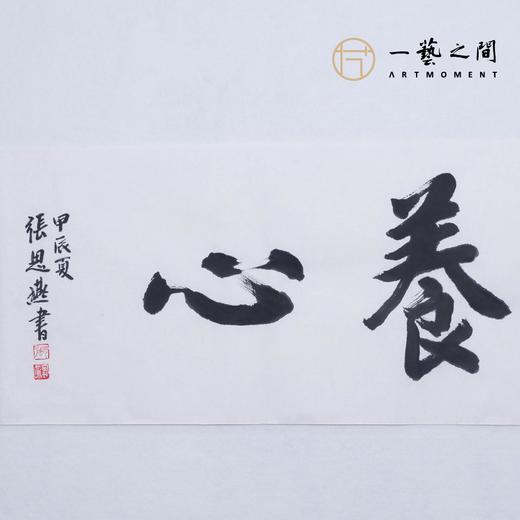 一藝之間
ARTMOMENT
養心
甲辰夏
張思燕書